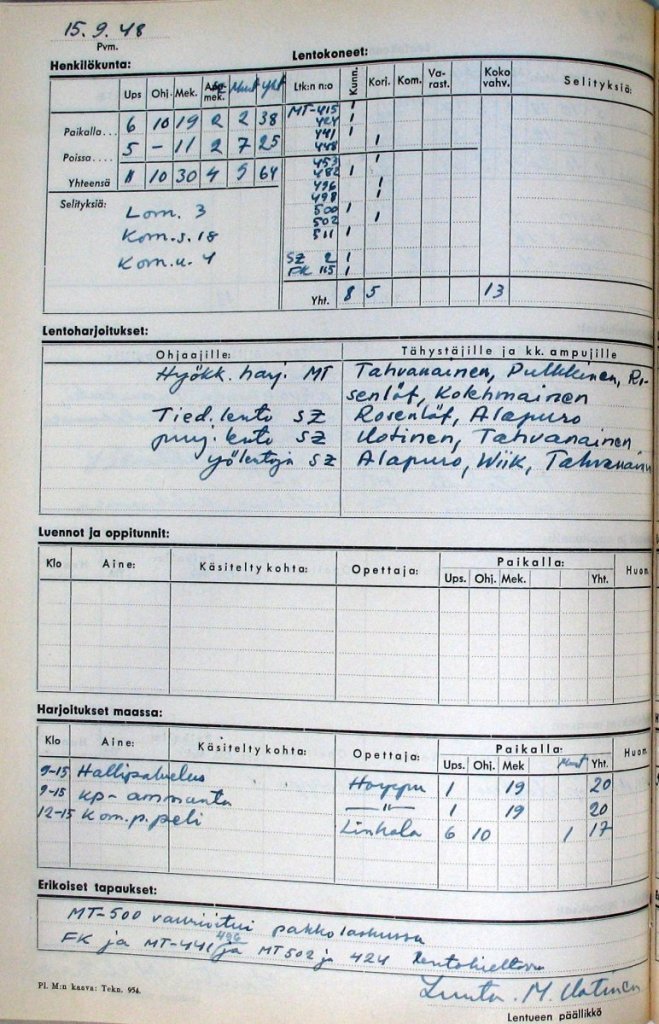 15.9.48
Pvm.
Henkilökunta:
Lentokoneet:
Ups Ohj. Mek. mek. Muut Yht Ltk:n n:o Kunn. Korj. Kom. Va-rast. Koko vahv. Selityksiä:
Paikalla... 6 10 19 2 2 38
Poissa.... 5 - 11 2 7 25
Yhteensä 11 10 30 4 9 64
MT-415 1
424 1
441 1
448 1
453 1
482 1
496 1
498 1
500 1
502 1
511 1
SZ 2 1
FK 115 1
Yht. 8 5 13
Selityksiä:
Lom. 3
Kom.s. 18
Kom.u. 4
Lentoharjoitukset:
Ohjaajille: Tähystäjille ja kk. ampujille
Hyökk. harj. MT Tahvanainen, Pulkkinen, Ro-
senlöf, Kokehmainen
Tied. lento SZ Rosenlöf, Alapuro
puuj. lento SZ Uotinen, Tahvanainen
yölentoja SZ Alapuro, Wiik, Tahvanainen
Luennot ja oppitunnit:
Klo Aine: Käsitelty kohta: Opettaja: Paikalla: Huom
Ups. Ohj. Mek. Yht.
Harjoitukset maassa:
Klo Aine: Käsitelty kohta: Opettaja: Paikalla: Huom
Ups. Ohj. Mek Muut Yht.
9-15 Hallipalvelus Harppu 1 19 20
9-15 kp-ammunta —"— 1 19 20
12-15 Kom.p.peli Linkola 6 10 1 17
Erikoiset tapaukset:
MT-500 vaurioitui pakkolaskussa
FK ja MT-441, 496 ja MT 502 ja 424 lentokiellossa
Pl. M:n kaava: Tekn. 954.
Luutn. M. Uotinen
Lentueen päällikkö